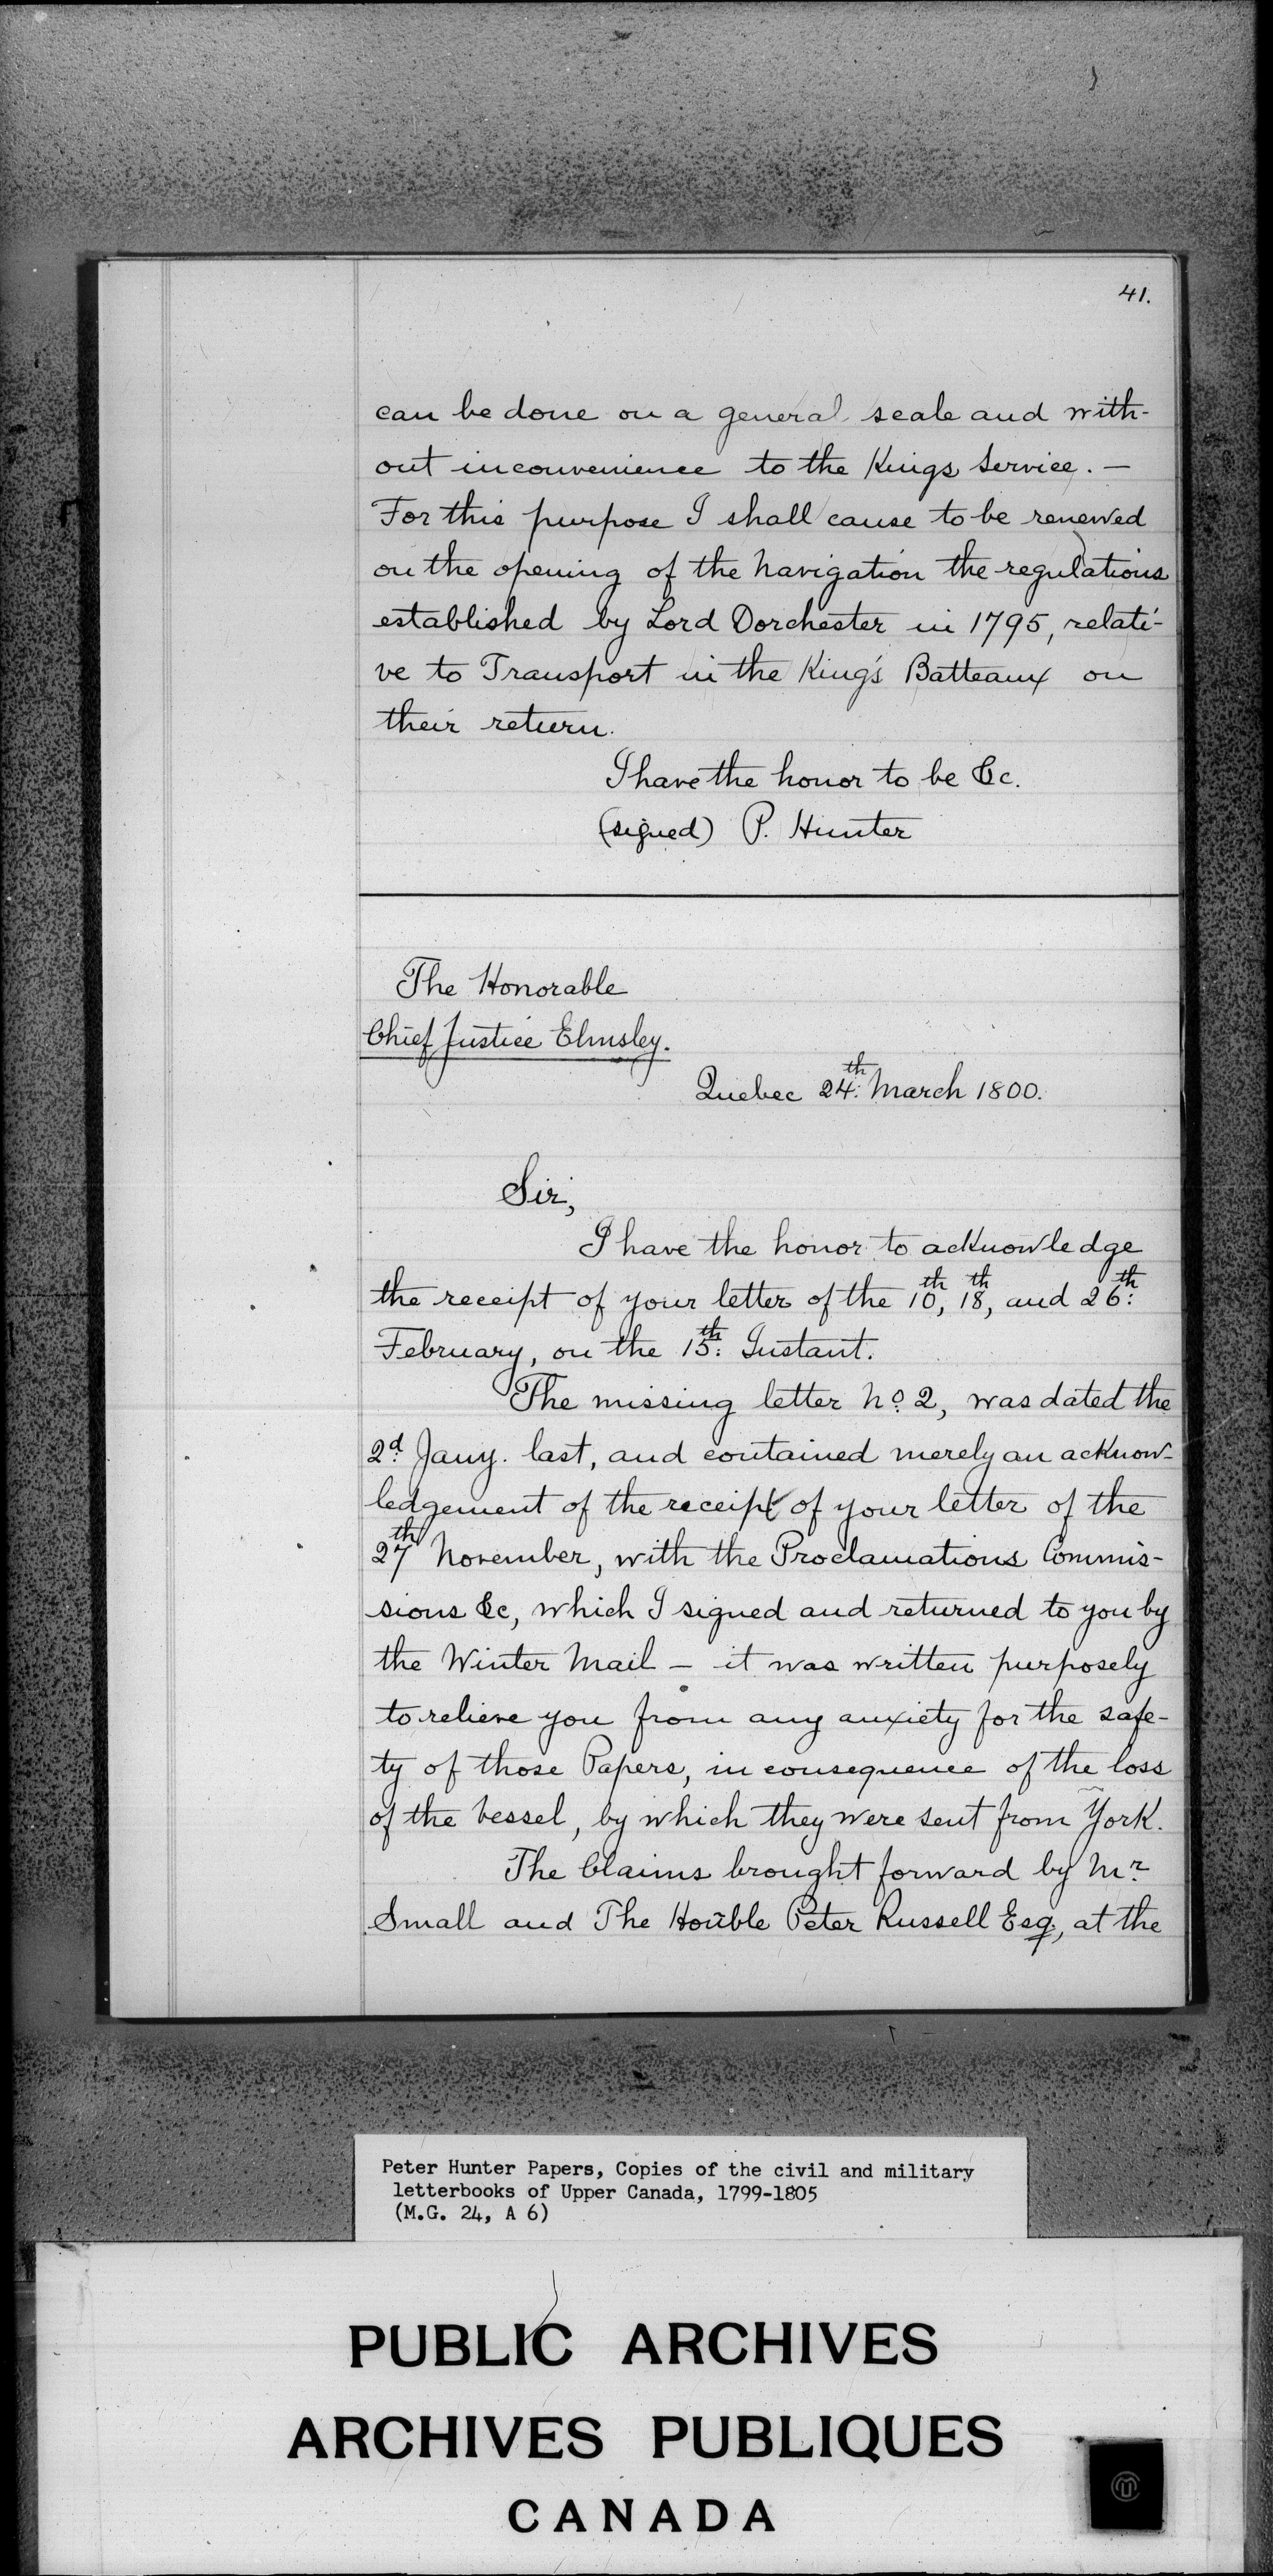 41.
can be done on a general scale and with-
out inconvenience to the Kings Service. —
For this purpose I shall cause to be renewed
on the opening of the Navigation the regulations
established by Lord Dorchester in 1795, relati-
ve to Transport in the King's Batteaux on
their return.
I have the honor to be &c.
(signed) P. Hunter
The Honorable
Chief Justice Elmsley.
Quebec 24th: March 1800.
Sir,
I have the honor to acknowledge
the receipt of your letter of the 10th, 18th, and 26th:
February, on the 15th: Instant.
The missing letter No. 2, was dated the
2d. Jany. last, and contained merely an acknow-
ledgement of the receipt of your letter of the
27th November, with the Proclamations Commis-
sions &c, which I signed and returned to you by
the Winter Mail — it was written purposely
to relieve you from any anxiety for the safe-
ty of those Papers, in consequence of the loss
of the Vessel, by which they were sent from York.
The Claims brought forward by Mr.
Small and The Honble Peter Russell Esq, at the
Peter Hunter Papers, Copies of the civil and military
letterbooks of Upper Canada, 1799-1805
(M.G. 24, A 6)
PUBLIC ARCHIVES
ARCHIVES PUBLIQUES
CANADA